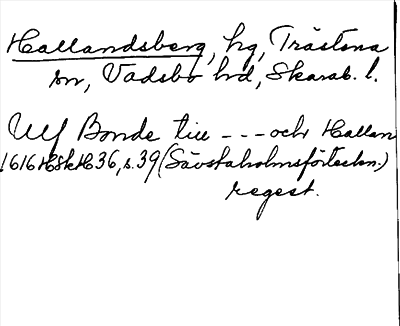 Hallandsberg, hg, Trästena
sn, Vadsbo hd, Skarab. l.
Ulf Bonde till --- och Hallan
1616 HSkH 36, s. 39 (Sävstaholmsförteckn.)
regest.